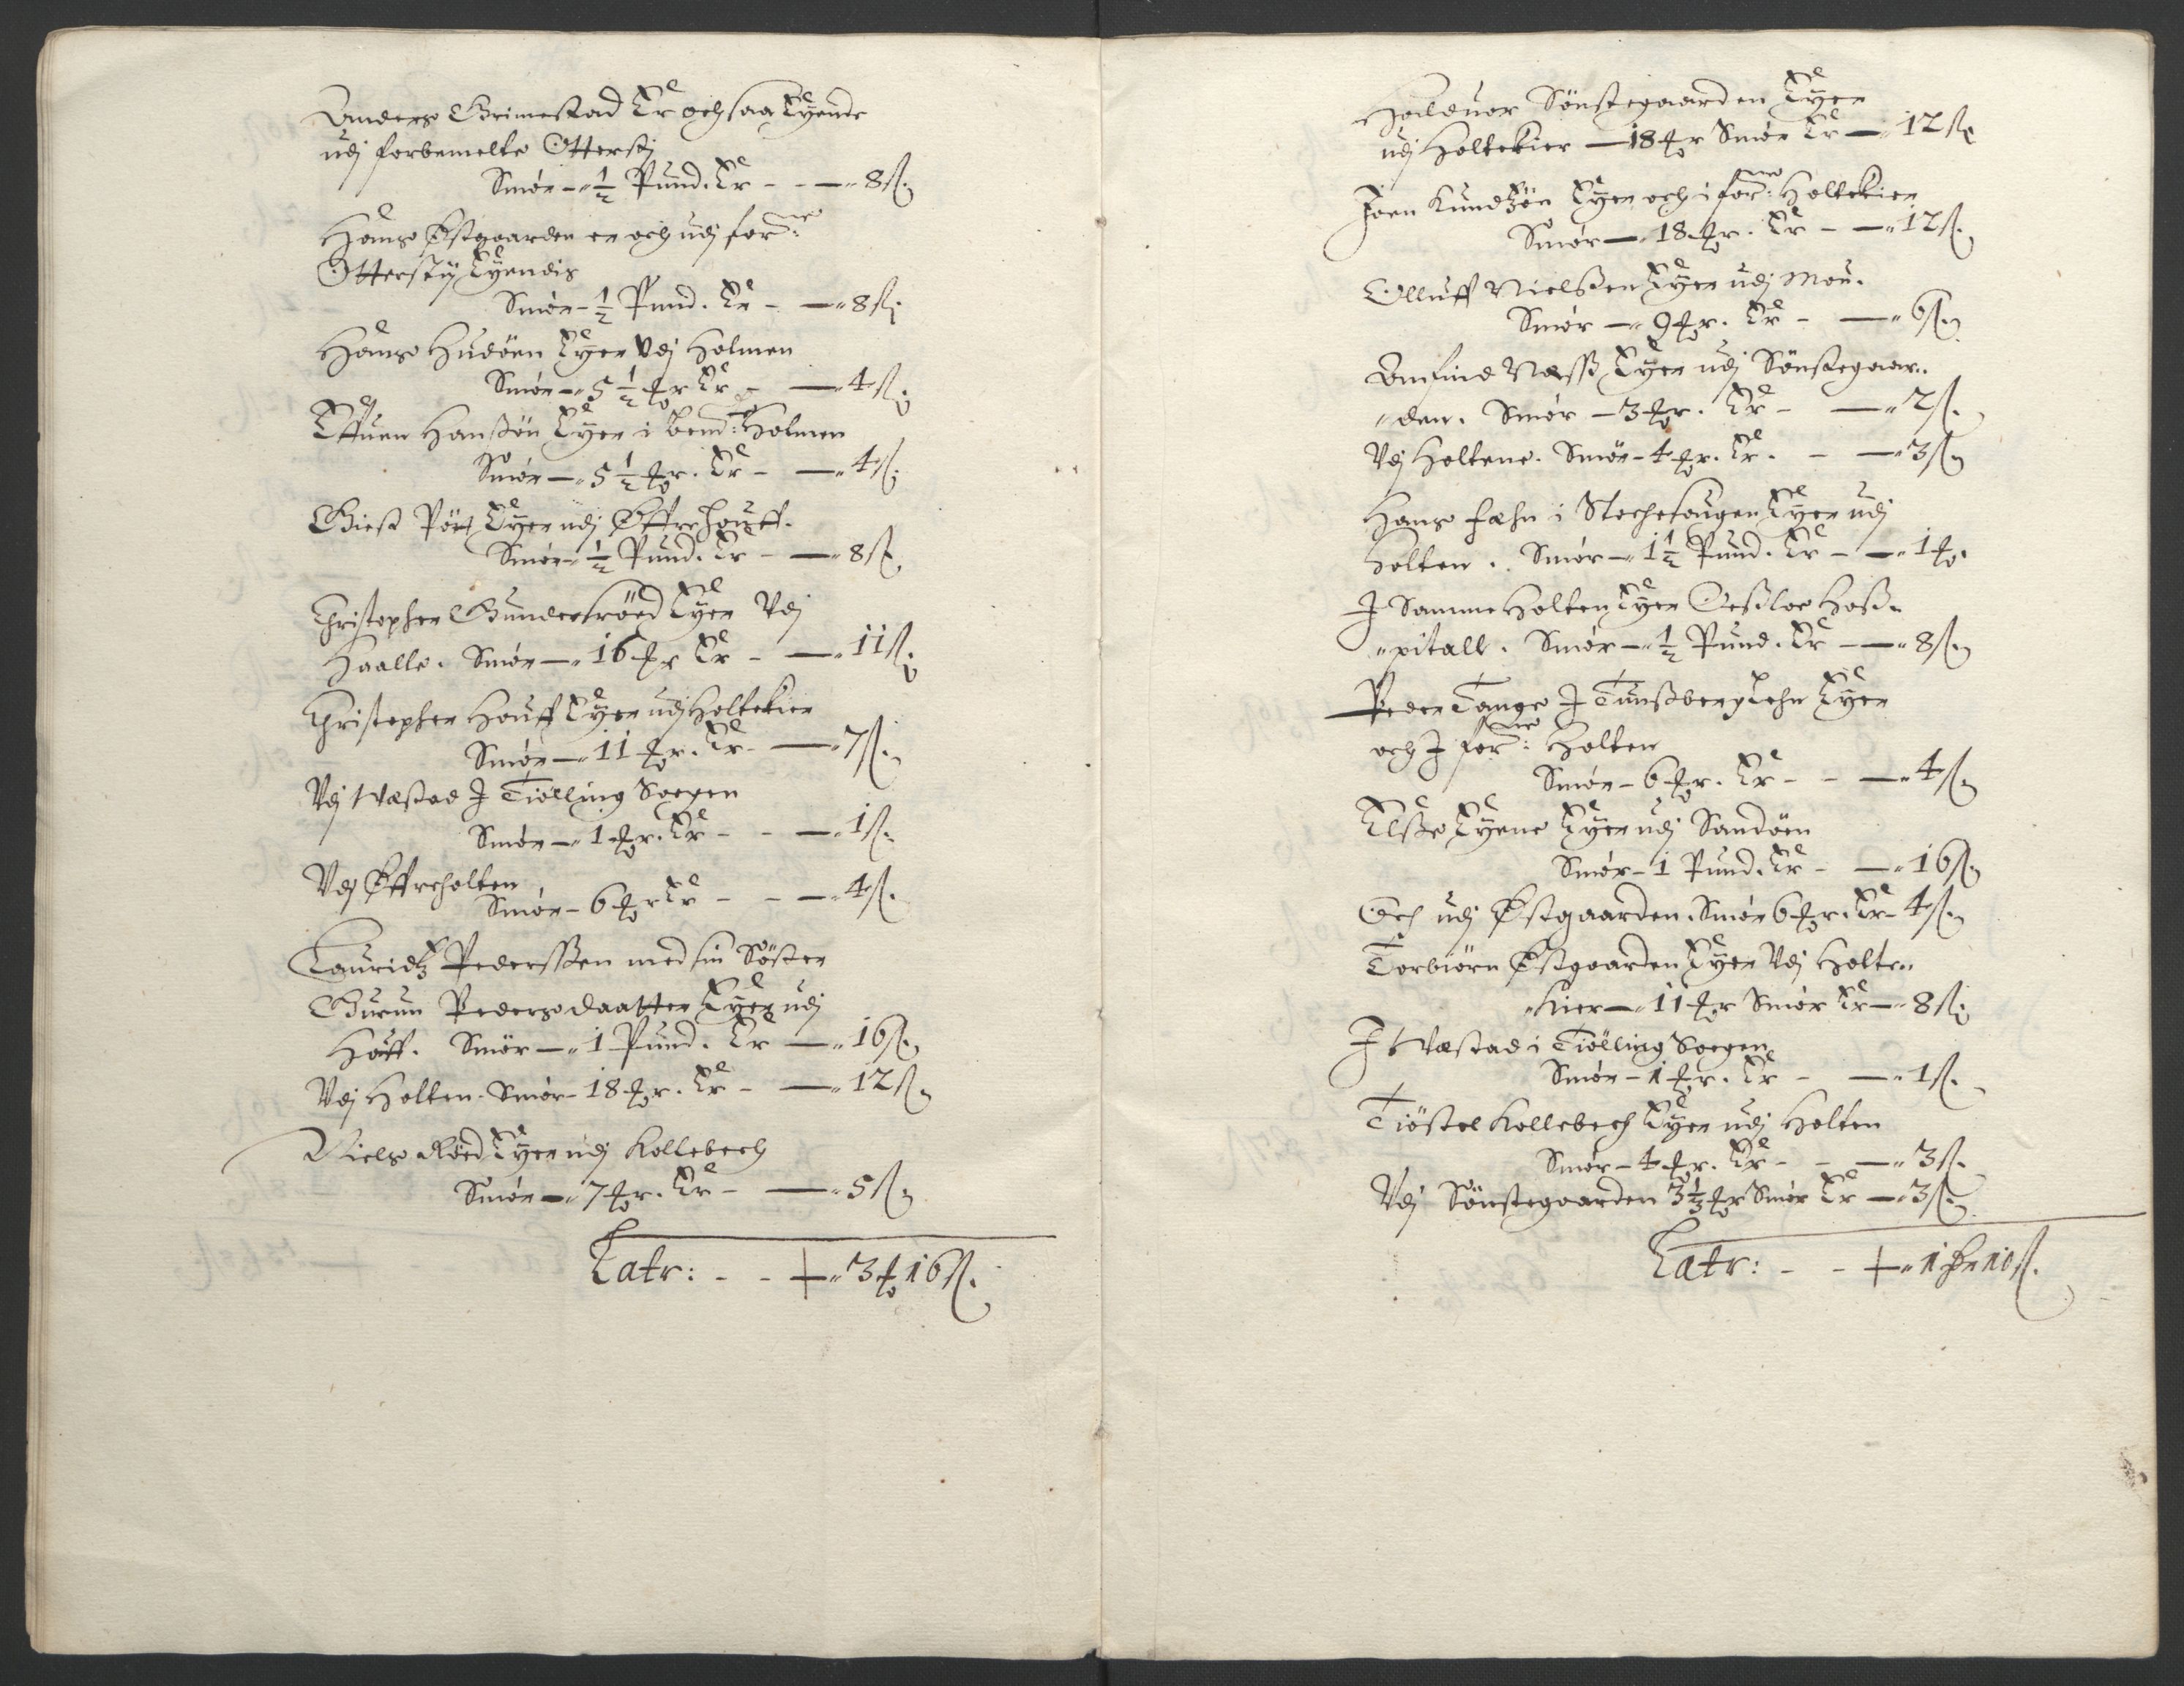 Anders Grimestad Er ochsaa Eyende
udj forbemelte Otterstj
Smör - ½ Pund. Er - - 8 ß.
Hans Östgaarden er och udj forne:
Otterstij Eyendis
Smör - ½ Pund. Er - 8 ß
Hans Hudöen Eyer Udj Holmen
Smör - 5 ½ ℔r Er - 4 ß.
Effuen Hanßön Eyer i bemte: Holmen
Smör - 5 ½ ℔r. Er - 4 ß.
Giest Eyer udj Öffrehouff.
Smör - ½ Pund. Er - 8 ß
Christopher Gundersröed Eyer Udj
Haalle. Smör - 16 ℔r Er - 11 ß.
Christopher Houff Eyer udj Holtekier
Smör - 11 ℔r. Er - 7 ß.
Udj Wæstad J Tiölling Sogen
Smör - 1 ℔r. Er - - 1 ß.
Udj Öffreholten
Smör - 6 ℔r Er - - 4 ß.
Lauridtz Pedersßen med sin Söster
Gurun Pedersdaatter Eyer udj
Houff. Smör - 1 Pund. Er - 16 ß.
Udj Holten. Smör - 18 ℔r. Er - 12 ß.
Niels Röed Eyer udj Kollebech
Smör - 7 ℔r. Er - 5 ß.
Latr: - - 3 ℔ 16 ß.
Halduor Sönstegaarden Eyer
udj Holtekier - 18 ℔r Smör Er - 12 ß
Joen Knudtzön Eyer och i forne: Holtekier
Smör - 18 ℔r. Er - 12 ß.
Olluff Nielßen Eyer udj Mou.
Smör - 9 ℔r. Er - 6 ß.
Amfind Næss Eyer udj Sönstegaar-
den. Smör - 3 ℔r. Er - 2 ß.
Udj Holtene. Smör - 4 ℔r. Er. - 3 ß
Hans Fæhn i Stochesougen Eyer udj
Holten. Smör - 1 ½ Pund. Er - 1 ℔.
J Samme Holten Eyer Oeßloe Hoß-
pitall. Smör - ½ Pund. Er - 8 ß.
Peder Tange J Tunßberg Lehn Eyer
och J forne: Holten
Smör - 6 ℔r. Er - - 4 ß.
Elße Eyene Eyer udj Sandöen
Smör - 1 Pund. Er - 16 ß
Och udj Östgaarden. Smör 6 ℔r. Er - 4 ß.
Torbiörn Östgaarden Eyer Udj Holte-
kier - 11 ℔r Smör Er - 8 ß
J Wæstad i Tiölling Sogen
Smör - 1 ℔r. Er - 1 ß.
Tiöstel Kollebech Eyer udj Holten
Smör - 4 ℔r. Er - - 3 ß.
Udj Sönstegaarden 3 ⅓ ℔r Smör Er - 3 ß.
Latr: - - 10 ß.